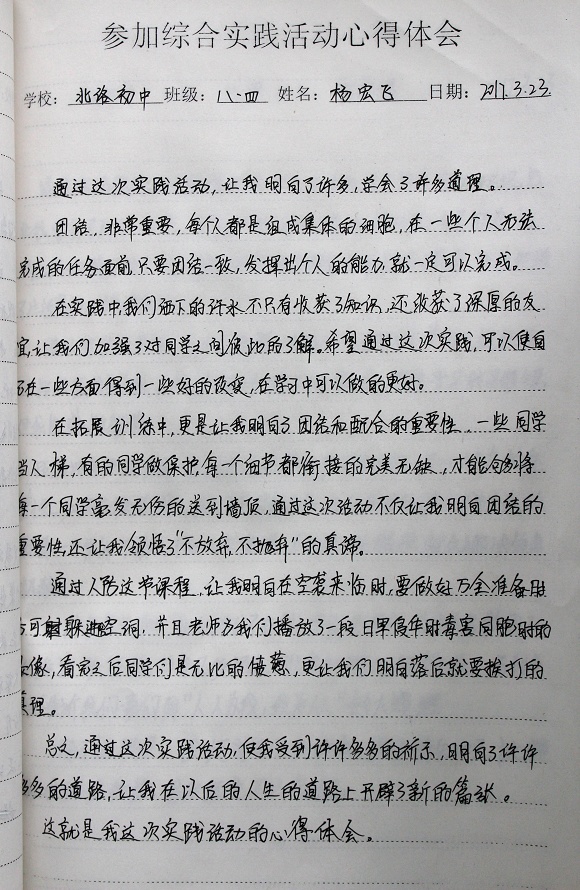 参加综合实践活动心得体会
学校：北洛初中 班级：八.四 姓名：杨宏飞 日期：2017.3.23.
通过这次实践活动，让我明白了许多，学会了许多道理。
团结，非常重要，每个人都是组成集体的细胞，在一些个人无法
完成的任务面前，只要团结一致，发挥出个人的能力，就一定可以完成。
在实践中，我们洒下的汗水不只有收获了知识，还收获了深厚的友
宜，让我们加强了对同学之间彼此的了解。希望通过这次实践，可以使自
己在一些方面得到一些好的改变，在学习中可以做的更好。
在拓展训练中，更是让我明白了团结和配合的重要性，一些同学
当人梯，有的同学做保护，每一个细节都衔接的完美无缺，才能够将
每一个同学毫发无伤的送到墙顶，通过这次活动不仅让我明白团结的
重要性，还让我领悟了“不放弃，不抛弃”的真谛。
通过人防这节课程，让我明白在空袭来临时，要做好万全准备，
可躲进空洞，并且老师为我们播放了一段日军侵华时毒害同胞时的
像，看完之后同学们是无比的愤怒，更让我们明白落后就要挨打的
真理。
总之，通过这次实践活动，使我受到许许多多的启示，明白了许许
多多的道路，让我在以后的人生的道路上开辟了新的篇张。
这就是我这次实践活动的心得体会。